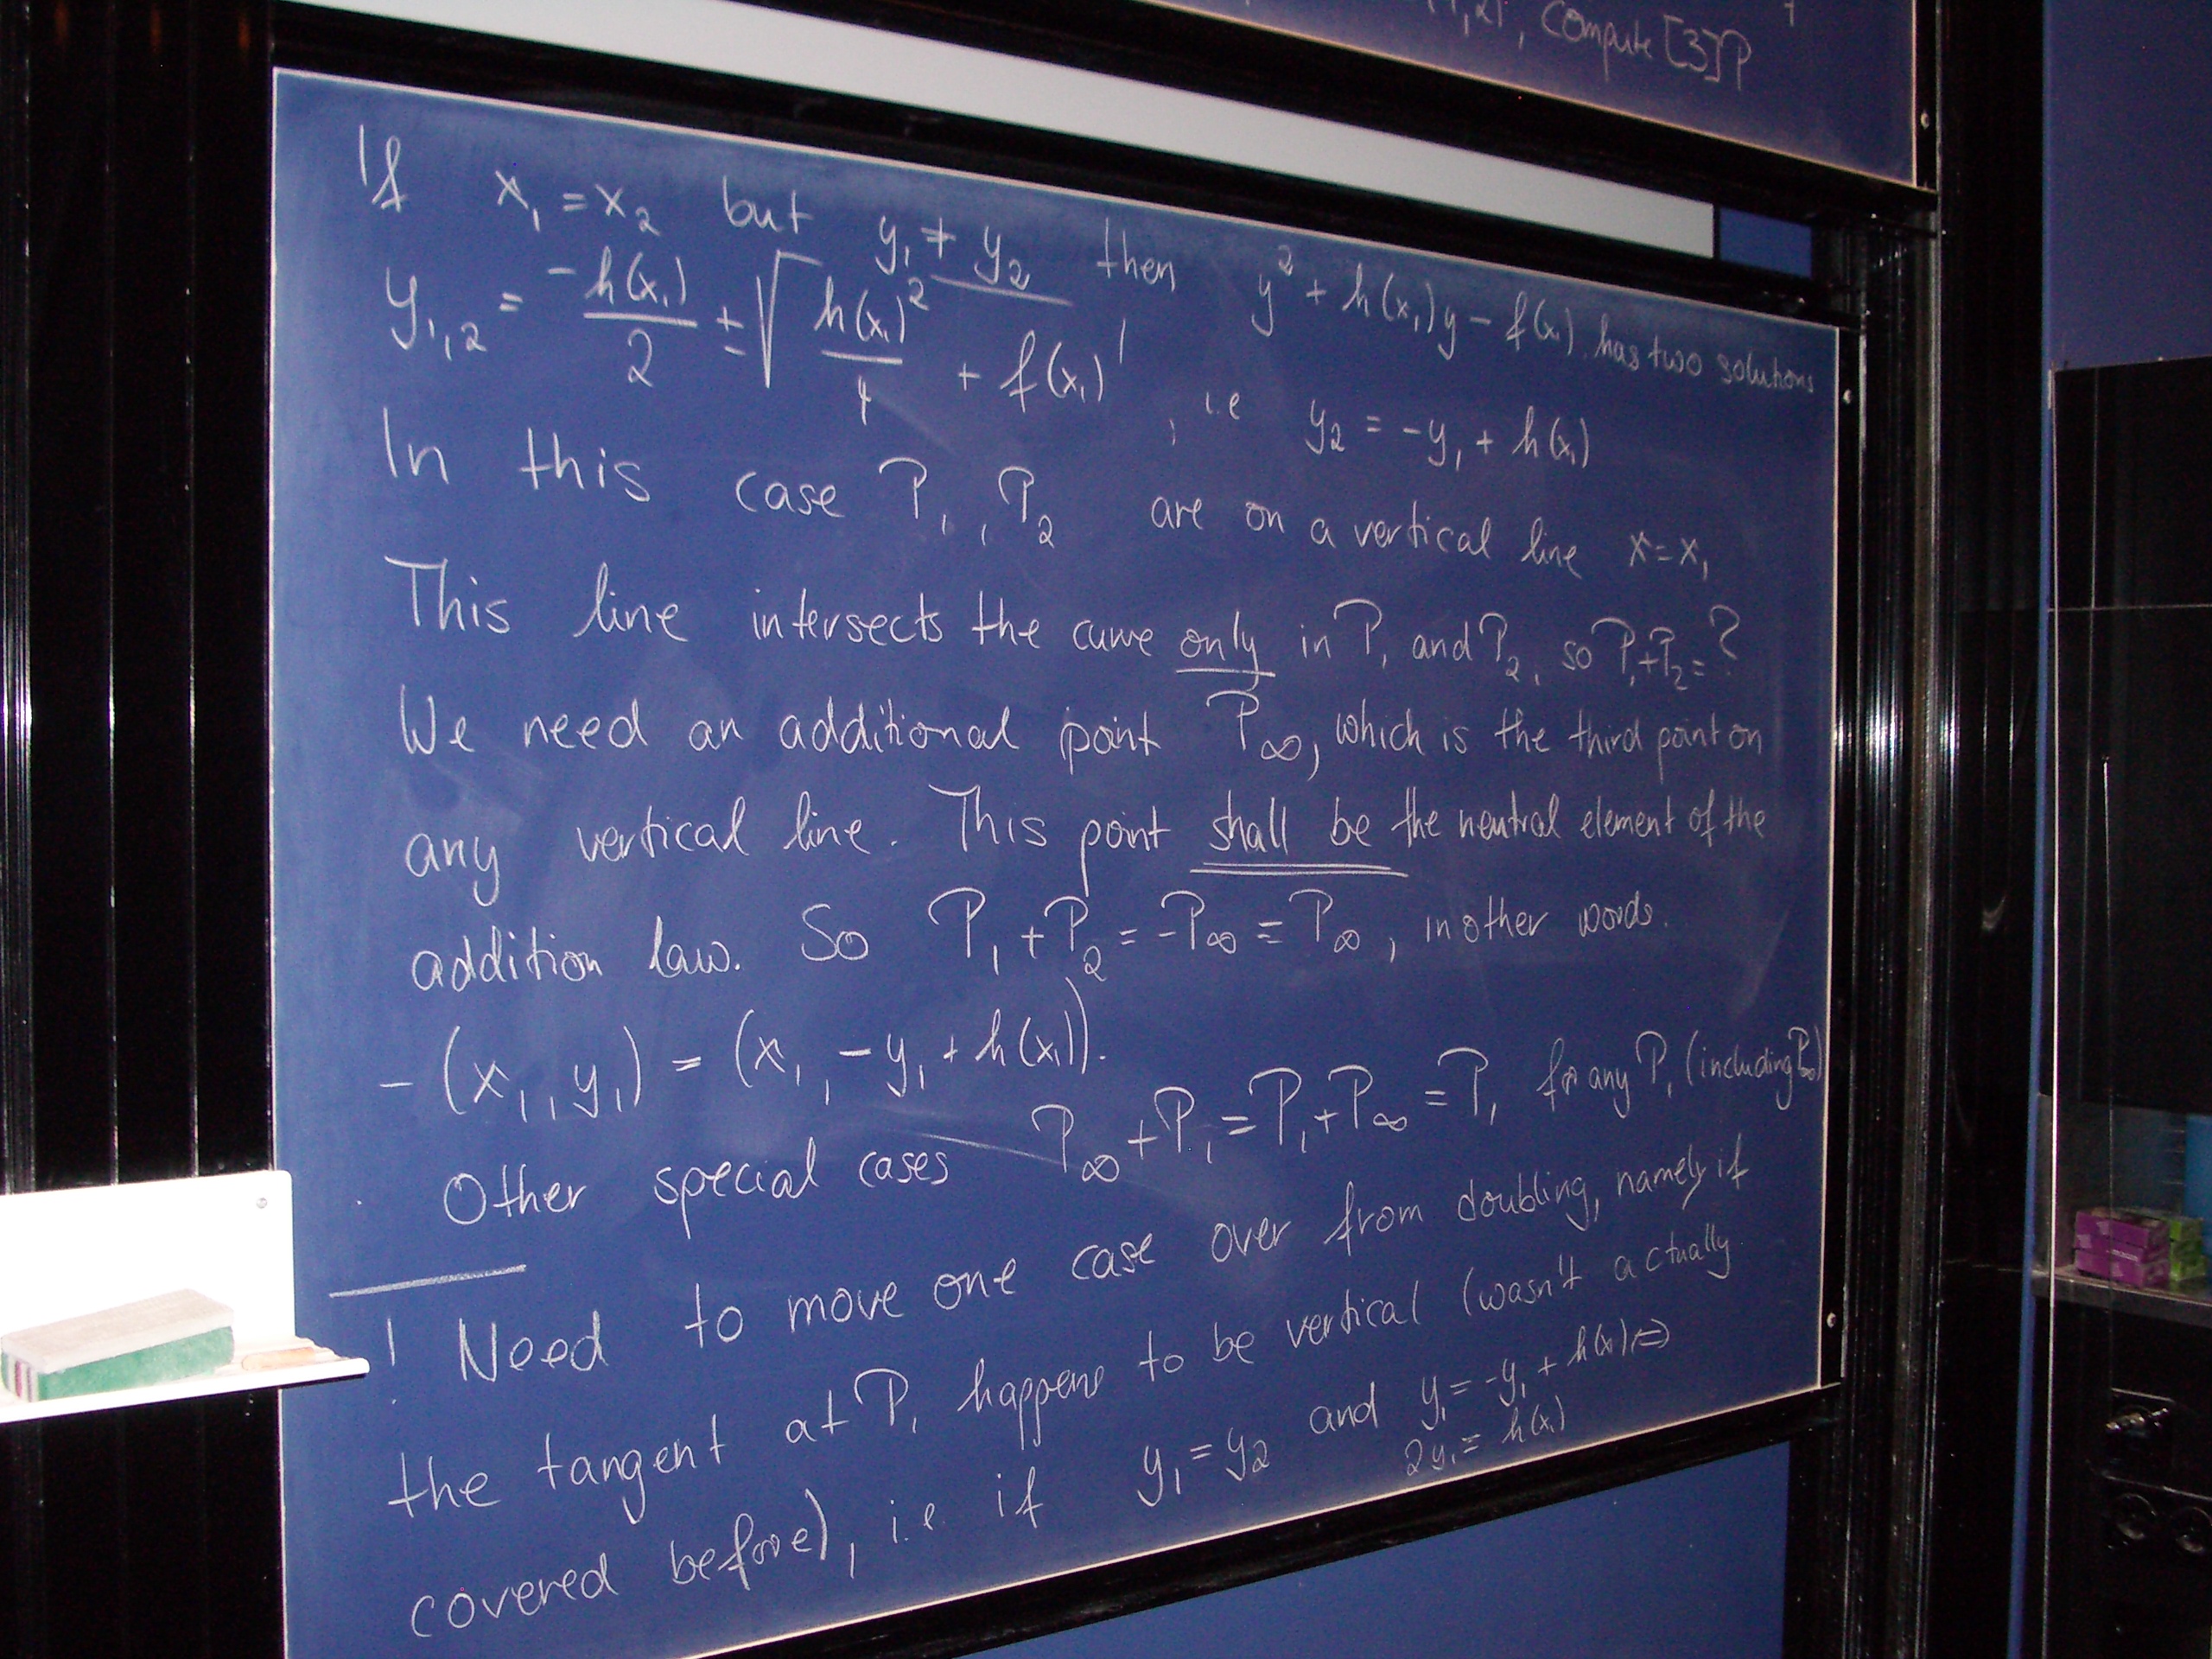 , Compute [3]P
If x₁ = x₂ but y₁ ≠ y₂ then y² + h(x₁)y - f(x₁) has two solutions
y₁,₂ = -h(x₁)/2 ± √(h(x₁)²/4 + f(x₁)) , i.e y₂ = -y₁ + h(x₁)
In this case P₁, P₂ are on a vertical line x = x₁
This line intersects the curve only in P₁ and P₂, so P₁+P₂ = ?
We need an additional point P∞, which is the third point on
any vertical line. This point shall be the neutral element of the
addition law. So P₁ + P₂ = -P∞ = P∞, in other words.
- (x₁, y₁) = (x₁, -y₁ + h(x₁)).
Other special cases P∞ + P₁ = P₁ + P∞ = P₁ for any P₁ (including P∞)
! Need to move one case over from doubling, namely if
the tangent at P₁ happens to be vertical (wasn't actually
covered before), i.e. if y₁ = y₂ and y₁ = -y₁ + h(x₁) ⇔
2y₁ = h(x₁)